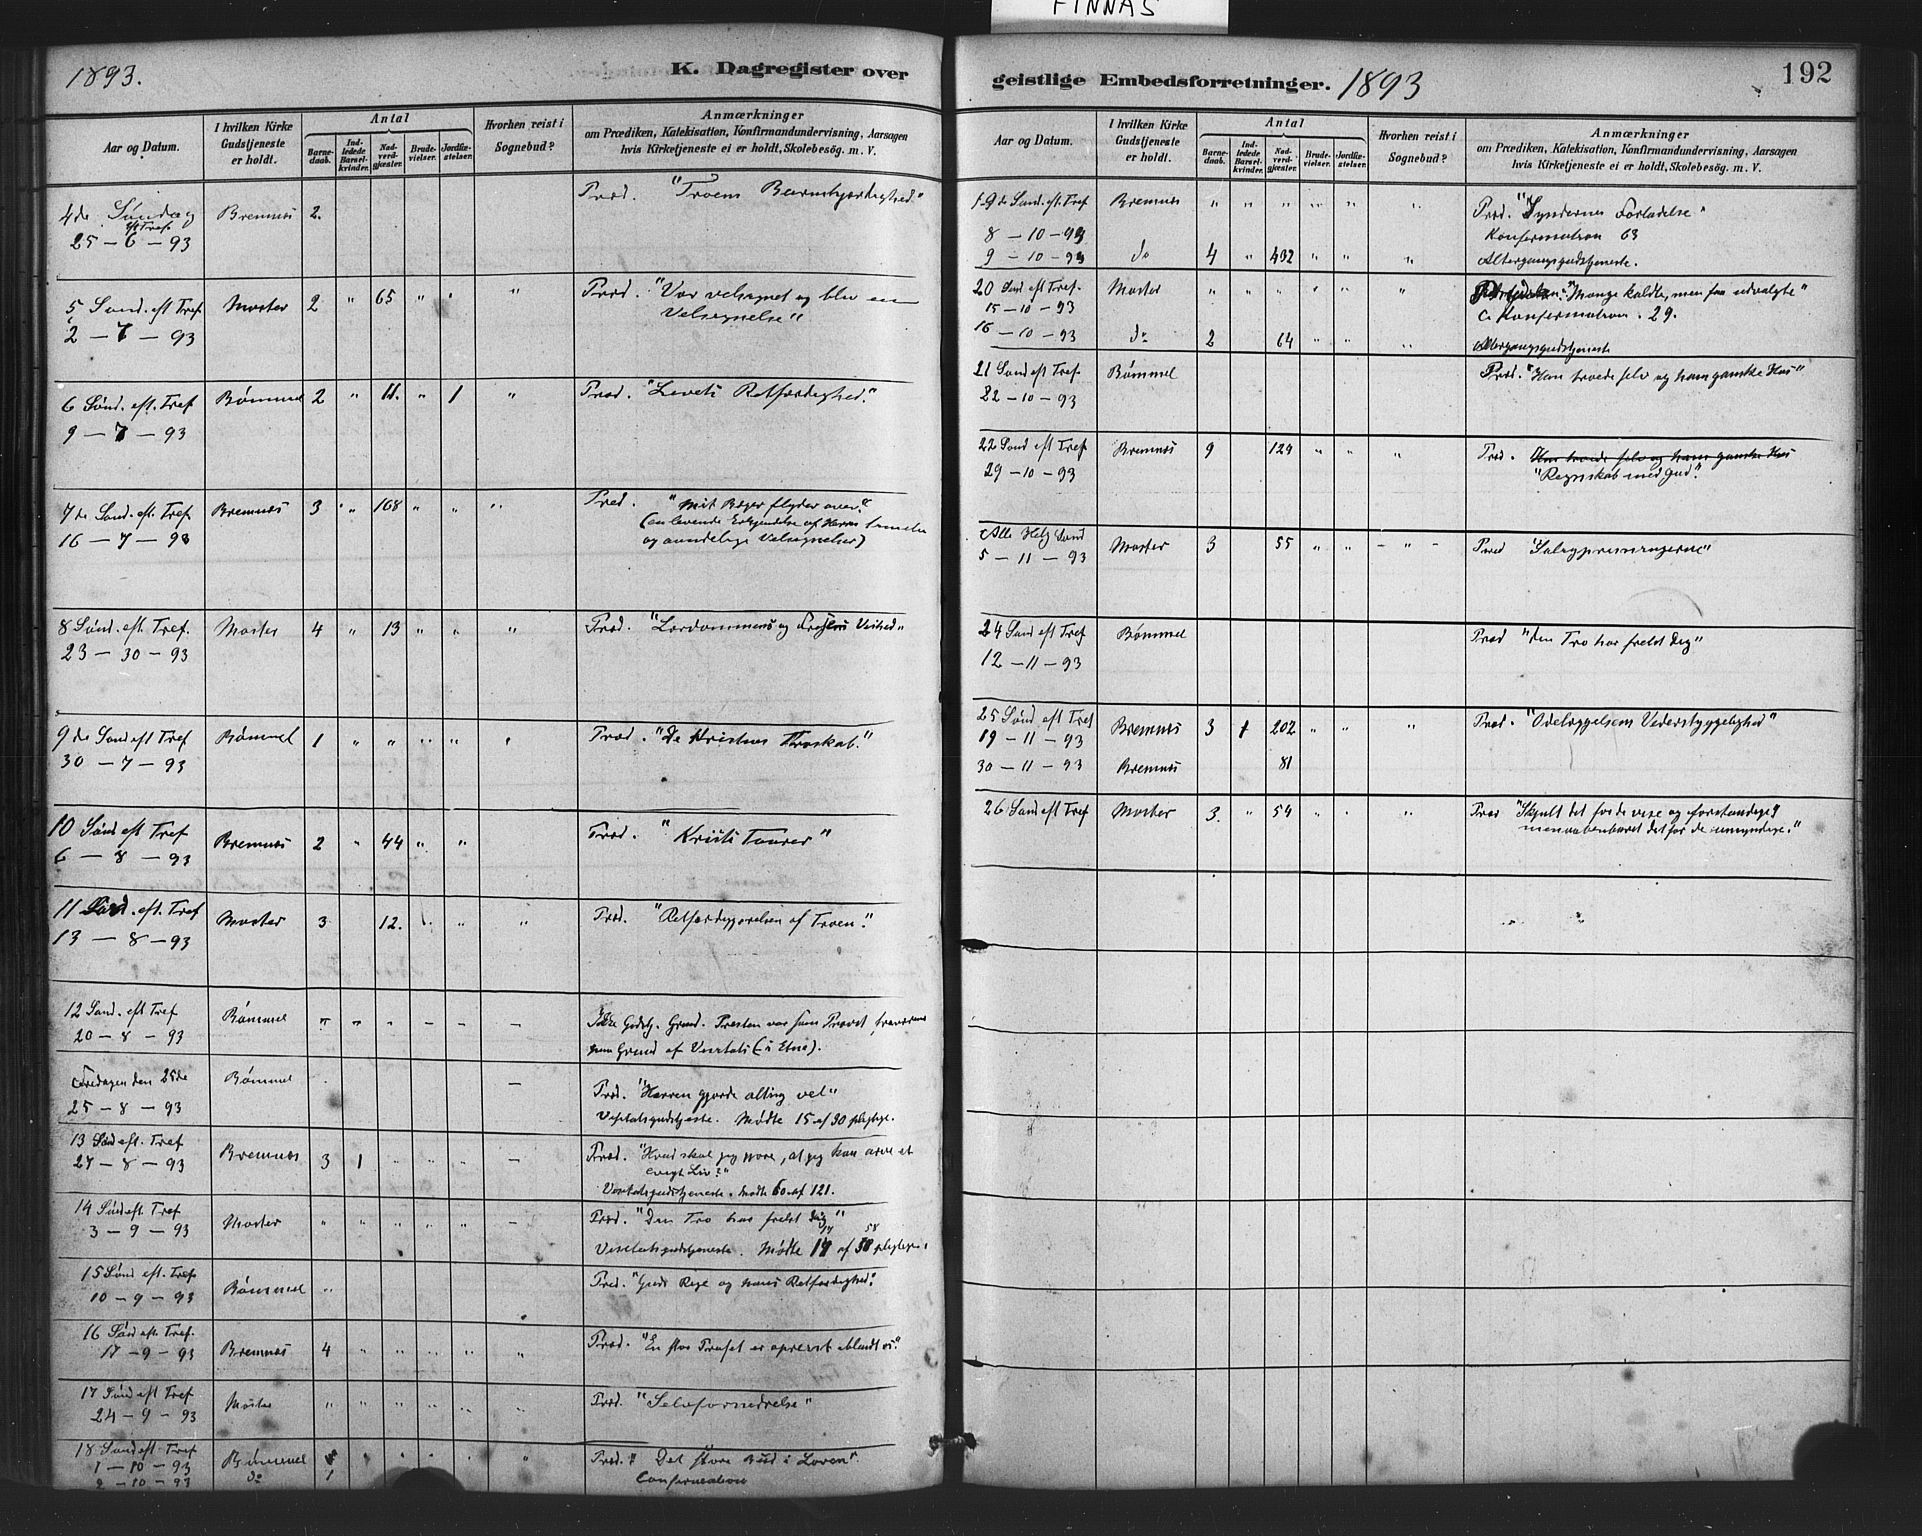 FINNÅS
1893.
K. Dagregister over
Aar og Datum.
I hvilken Kirke Gudstjeneste er holdt.
Antal
Barnedaab.
Indledede Barselkvinder.
Nadverdgjæster.
Brudevielser.
Jordfæstelser.
Hvorhen reist i Sognebud?
Anmærkninger
om Prædiken, Katekisation, Konfirmandundervisning, Aarsagen
hvis Kirketjeneste ei er holdt, Skolebesög. m. V.
4de Søndag Bremnæs 2. Præd. "Troens Barmhjærtighed."
eft Tref.
25-6-93
5 Sønd. eft Tref Moster 2 " 65 " " Præd. "Vær velsignet og bliv en
2-7-93 Velsignelse"
6 Sønd. eft. Tref Bømmel 2 " 11. " 1 " Præd. "Livets Retfærdighed."
9-7-93
7de Sønd. eft. Tref Bremnæs 3 " 168 " " " Præd. "Mit Bæger flyder over."
16-7-93 (en levende Erkjendelse af Herrens
og aandelige Velsignelser)
8 Sønd. eft. Tref. Moster 4 " 13 " " " Præd. "Lærdommens og Frelsens Vished"
23-30-93
9de Sønd eft Tref Bømmel 1 " " " " " Præd. "De Kristnes Troskab."
30-7-93
10 Sønd eft Tref Bremnæs 2 " 44 " " Præd. "Kristi Taarer"
6-8-93
11 Sønd. eft. Tref Moster 3 12. " " " Præd. "Retfærdiggjørelsen af Troen."
13-8-93
12 Sønd. eft Tref Bømmel " " " - - - Ikke Gudstj. Grund. Presten var som Provst fraværende
20-8-93 paa Grund af Visitats (i Etne).
Fredagen den 25de Bømmel - Præd. "Herren gjorde alting vel"
25-8-93 Visitatsgudstjeneste. Mødte 15 af 30 pligtige.
13 Sønd eft. Tref Bremnæs 3 1 " " " - Præd. "Hvad skal jeg gjøre, at jeg kan arve et
27-8-93 evigt Liv?"
Visitatsgudstjeneste. Mødte 60 af 121.
14 Sønd eft. Tref Moster " " " " " - Præd. "Din Tro har frelst Dig"
3-9-93 Visitatsgudstjeneste. Mødte 17 af 58 pligtige.
15 Sønd eft. Tref Bømmel " Præd. "Guds Rige og hans Retfærdighed."
10-9-93
16 Sønd eft. Tref. Bremnæs 4 " " " " " Præd. "En stor Profet er opreist iblandt os."
17-9-93
17 Sønd eft Tref Moster " " " " " " Præd. "Selvfornedrelse"
24-9-93
18 Sønd eft. Tref Bømmel " " " " " Præd. "Det store Bud i Loven".
1-10-93 do 1 Confirmation
2-10-93
geistlige Embedsforretninger. 1893
192
Aar og Datum.
I hvilken Kirke Gudstjeneste er holdt.
Antal
Barnedaab.
Indledede Barselkvinder.
Nadverdgjæster.
Brudevielser.
Jordfæstelser.
Hvorhen reist i Sognebud?
Anmærkninger
om Prædiken, Katekisation, Konfirmandundervisning, Aarsagen
hvis Kirketjeneste ei er holdt, Skolebesög. m. V.
19de Sønd. eft. Tref Bremnæs " " " " " " Præd. "Syndernes Forladelse"
8-10-93 Konfirmation 63
9-10-93 do 4 " 432 " " " Altergangsgudstjeneste.
20 Sønd eft Tref. Moster " " " " " " "Mange kaldte, men faa udvalgte"
15-10-93 Konfirmation. 29.
16-10-93 do 2 64 " " " Altergangsgudstjeneste
21 Sønd eft Tref. Bømmel Præd. "Han troede selv og hans ganske Hus"
22-10-93
22 Sønd eft Tref Bremnæs 9 129 " " " Præd. Han troede selv og hans ganske Hus
29-10-93 "Regnskab med Gud."
Alle Helg Sønd Moster 3 55 " " - " - Præd "Saligprisningerne"
5-11-93
24 Sønd eft Tref Bømmel Præd "Din Tro har frelst Dig"
12-11-93
25 Sønd eft Tref Bremnæs 3 1 202 " " " Præd. "Ødelæggelsens Vederstyggelighed"
19-11-93
30-11-93 Bremnæs 81
26 Sønd eft Tref Moster 3. " 54 " " " Præd "Skjult det for de vise og forstandige,
men aabenbaret det for de umyndige."
" "